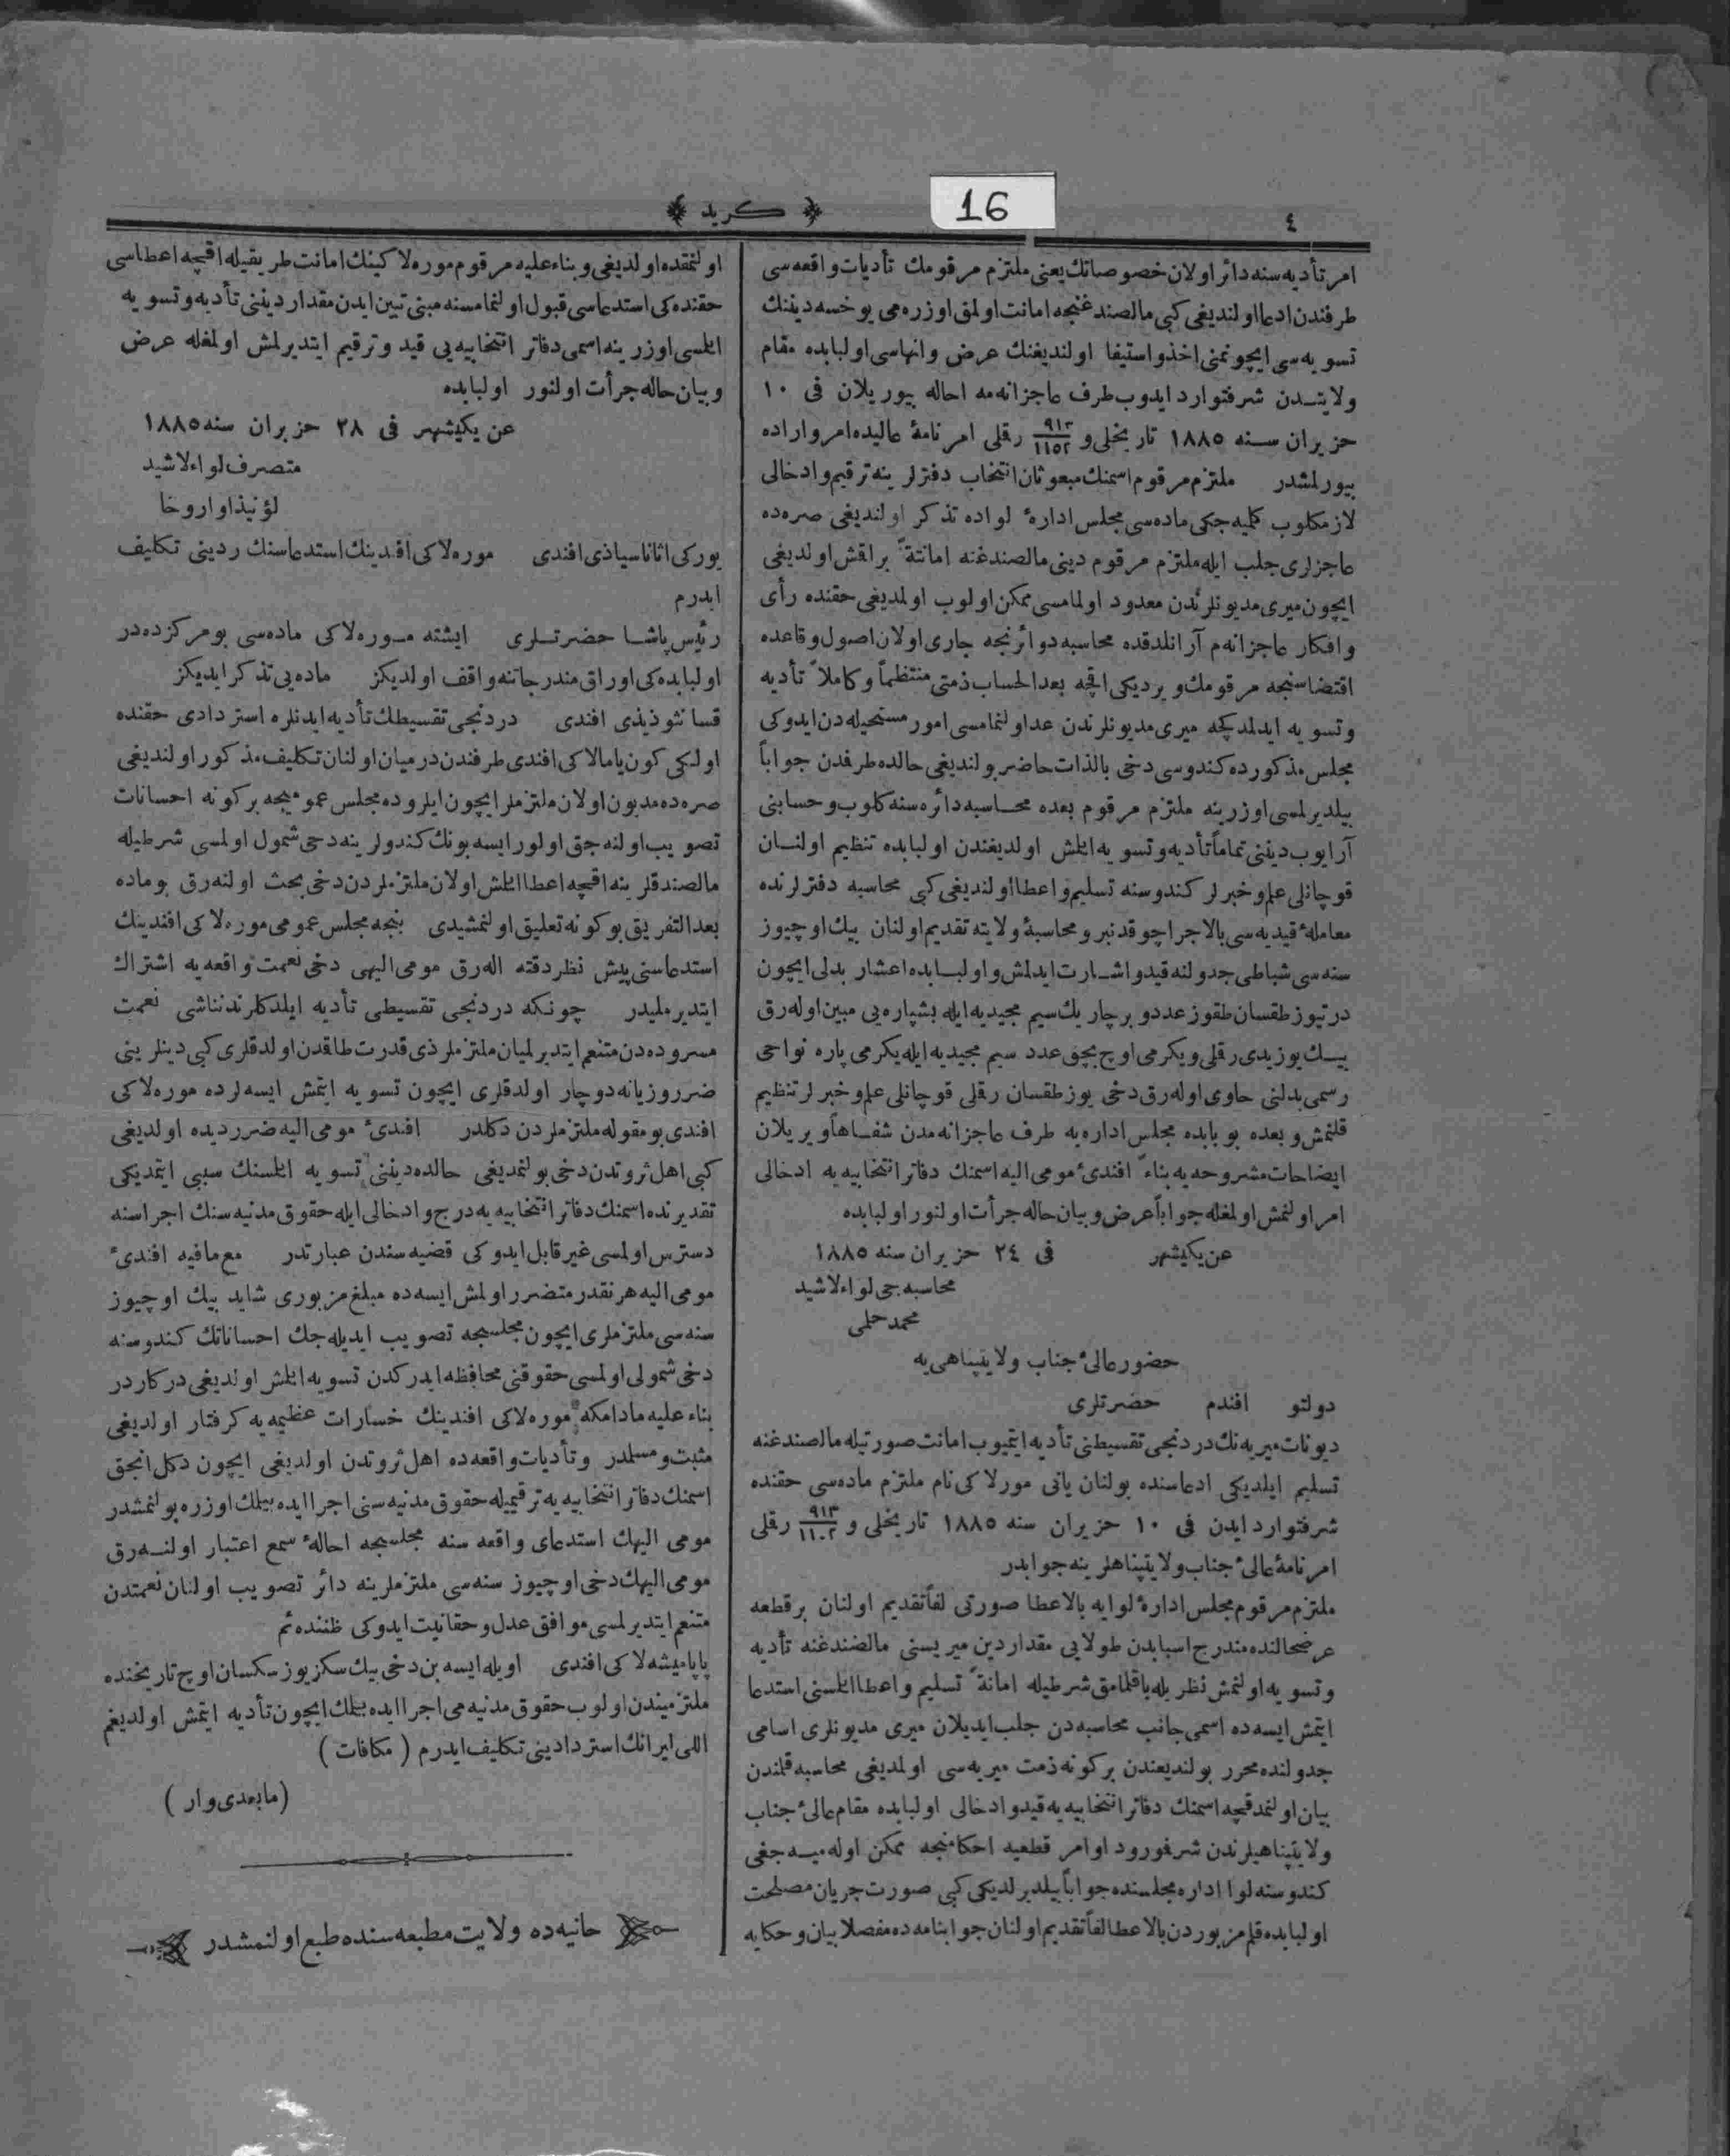 ٤
16
﴿ كريد ﴾
امر تأديه‌سنه دائر اولان خصوصاتك يعنی ملتزم مرقومك تأديات واقعه‌سی
طرفندن ادعا اولنديغی كبی مالصندغنجه امانت اولمق اوزره‌می يوخسه ديننك
تسويه‌سی ايچونمی اخذ و استيفا اولنديغنك عرض وانهاسی اولبابده مقام
ولايتدن شرفتوارد ايدوب طرف عاجزانه‌مه احاله بيوريلان فی ١٠
حزيران سنه ١٨٨٥ تاريخلی و ٩١٣/١١٥٢ رقلی امرنامهٔ عاليده امر واراده
بيورلمشدر ملتزم مرقوم اسمنك مبعوثان انتخاب دفترلرينه ترقيم وادخالی
لازمكلوب كلميه‌جكی ماده‌سی مجلس ادارهٔ لواده تذكر اولنديغی صره‌ده
عاجزلری جلب ايله ملتزم مرقوم دينی مالصندغنه امانتةً براقش اولديغی
ايچون ميری مديونلرندن معدود اولمامسی ممكن اولوب اولمديغی حقنده رأی
وافكار عاجزانه‌م آرانلدقده محاسبه دوائرنجه جاری اولان اصول وقاعده
اقتضاسنجه مرقومك ويرديكی اقچه بعدالحساب ذمتی منتظماً وكاملاً تأديه
وتسويه ايدلدكجه ميری مديونلرندن عد اولنمامسی امور مستحيله‌دن ايدوكی
مجلس مذكورده كندوسی دخی بالذات حاضر بولنديغی حالده طرفدن جواباً
بيلديرلمسی اوزرينه ملتزم مرقوم بعده محاسبه دائره‌سنه كلوب وحسابنی
آرايوب ديننی تماماً تأديه وتسويه ايلمش اولديغندن اولبابده تنظيم اولنان
قوچانلی علم وخبرلر كندوسنه تسليم واعطا اولنديغی كبی محاسبه دفترلرنده
معاملهٔ قيديه‌سی بالاجرا چوقدنبر ومحاسبهٔ ولايته تقديم اولنان بيك اوچيوز
سنه‌سی شباطی جدولنه قيد واشارت ايدلمش واولبابده اعشار بدلی ايچون
درتيوز طقسان طقوز عدد وبر چاريك سيم مجيديه ايله بشپاره‌يی مبين اوله‌رق
بيك يوز يدی رقلی ويكرمی اوچ بچق عدد سيم مجيديه ايله يكرمی پاره نواحی
رسمی بدلنی حاوی اوله‌رق دخی يوز طقسان رقلی قوچانلی علم وخبرلر تنظيم
قلنمش وبعده بوبابده مجلس اداره‌يه طرف عاجزانه‌مدن شفاهاً ويريلان
ايضاحات مشروحه‌يه بناءً افندیٔ مومی اليه اسمنك دفاتر انتخابيه‌يه ادخالی
امر اولنمش اولمغله جواباً عرض وبيان حاله جرأت اولنور اولبابده
عن يكيشهر فی ٢٤ حزيران سنه ١٨٨٥
محاسبه‌جی لواء لاشيد
محمد حلمی
حضور عالیٔ جناب ولايتپناهی‌يه
دولتلو افندم حضرتلری
ديونات ميريه‌نك دردنجی تقسيطنی تأديه ايتميوب امانت صورتيله مالصندغنه
تسليم ايلديكی ادعاسنده بولنان يانی مورلاكی نام ملتزم ماده‌سی حقنده
شرفتوارد ايدن فی ١٠ حزيران سنه ١٨٨٥ تاريخلی و ٩١٣/١١٠٢ رقلی
امرنامهٔ عالیٔ جناب ولايتپناهلرينه جوابدر
ملتزم مرقوم مجلس ادارهٔ لوايه بالاعطا صورتی لفاً تقديم اولنان برقطعه
عرضحالنده مندرج اسبابدن طولايی مقدار دين ميريسنی مالصندغنه تأديه
وتسويه اولنمش نظريله باقلمامق شرطيله امانةً تسليم واعطا ايلمسنی استدعا
ايتمش ايسه‌ده اسمی جانب محاسبه‌دن جلب ايديلان ميری مديونلری اسامی
جدولنده محرر بولنديغندن بركونه ذمت ميريه‌سی اولمديغی محاسبه قلمندن
بيان اولنمدقچه اسمنك دفاتر انتخابيه‌يه قيد وادخالی اولبابده مقام عالیٔ جناب
ولايتپناهيلرندن شرفورود اوامر قطعيه احكامنجه ممكن اوله‌ميه‌جغی
كندوسنه لوا اداره مجلسنده جواباً بيلديرلديكی كبی صورت جريان مصلحت
اولبابده قلم مزبوردن بالاعطا لفاً تقديم اولنان جوابنامه‌ده مفصلا بيان وحكايه
اولنمقده اولديغی وبناء عليه مرقوم موره‌لاكينك امانت طريقيله اقچه اعطاسی
حقنده‌كی استدعاسی قبول اولنمامسنه مبنی تبين ايدن مقدار ديننی تأديه وتسويه
ايلمسی اوزرينه اسمی دفاتر انتخابيه‌يی قيد وترقيم ايتديرلمش اولمغله عرض
وبيان حاله جرأت اولنور اولبابده
عن يكيشهر فی ٢٨ حزيران سنه ١٨٨٥
متصرف لواء لاشيد
لؤنيذا واروخا
يوركی اثاناسياذی افندی موره‌لاكی افندينك استدعاسنك ردينی تكليف
ايدرم
رئيس پاشا حضرتلری ايشته موره‌لاكی ماده‌سی بومركزده‌در
اولبابده‌كی اوراق مندرجاتنه واقف اولديكز ماده‌يی تذكر ايديكز
قسانثوذيذی افندی دردنجی تقسيطك تأديه ايدنلره استردادی حقنده
اولكی كون يامالاكی افندی طرفندن درميان اولنان تكليف مذكور اولنديغی
صره‌ده مديون اولان ملتزملر ايچون ايلروده مجلس عموميجه بركونه احسانات
تصويب اولنه‌جق اولور ايسه بونك كندولرينه دخی شمول اولمسی شرطيله
مالصندقلرينه اقچه اعطا ايلمش اولان ملتزملردن دخی بحث اولنه‌رق بوماده
بعدالتفريق بوكونه تعليق اولنمشيدی بنجه مجلس عمومی موره‌لاكی افندينك
استدعاسنی پيش نظر دقته اله‌رق مومی اليهی دخی نعمت واقعه‌يه اشتراك
ايتديرمليدر چونكه دردنجی تقسيطی تأديه ايلدكلرندن ناشی نعمت
مسروده‌دن متنعم ايتديرلميان ملتزملر ذی قدرت طاقدن اولدقلری كبی دينلرينی
ضرر وزيانه دوچار اولدقلری ايچون تسويه ايتمش ايسه‌لرده موره‌لاكی
افندی بومقوله ملتزملردن دكلدر افندیٔ مومی اليه ضرردیده اولديغی
كبی اهل ثروتدن دخی بولنمديغی حالده ديننی تسويه ايلمسنك سببی ايتمديكی
تقديرنده اسمنك دفاتر انتخابيه‌يه درج وادخالی ايله حقوق مدنيه‌سنك اجراسنه
دسترس اولمسی غير قابل ايدوكی قضيه‌سندن عبارتدر مع مافيه افندیٔ
مومی اليه هرنقدر متضرر اولمش ايسه‌ده مبلغ مزبوری شايد بيك اوچيوز
سنه‌سی ملتزملری ايچون مجلسجه تصويب ايديله‌جك احساناتك كندوسنه
دخی شمولی اولمسی حقوقنی محافظه ايدركدن تسويه ايلمش اولديغی دركاردر
بناء عليه مادامكه موره‌لاكی افندينك خسارات عظيمه‌يه كرفتار اولديغی
مثبت ومسلمدر وتأديات واقعه‌ده اهل ثروتدن اولديغی ايچون دكل انجق
اسمنك دفاتر انتخابيه‌يه ترقيميله حقوق مدنيه‌سنی اجرا ايده بيلمك اوزره بولنمشدر
مومی اليهك استدعای واقعه‌سنه مجلسجه احالهٔ سمع اعتبار اولنه‌رق
مومی اليهك دخی اوچيوز سنه‌سی ملتزملرينه دائر تصويب اولنان نعمتدن
متنعم ايتديرلمسی موافق عدل وحقانيت ايدوكی ظننده‌يم
پاپاميشه‌لاكی افندی اويله ايسه بن دخی بيك سكزيوز سكسان اوچ تاريخنده
ملتزميندن اولوب حقوق مدنيه‌می اجرا ايده بيلمك ايچون تأديه ايتمش اولديغم
اللی ليرانك استردادينی تكليف ايدرم ( مكافات )
( مابعدی وار )
حانيه‌ده ولايت مطبعه‌سنده طبع اولنمشدر